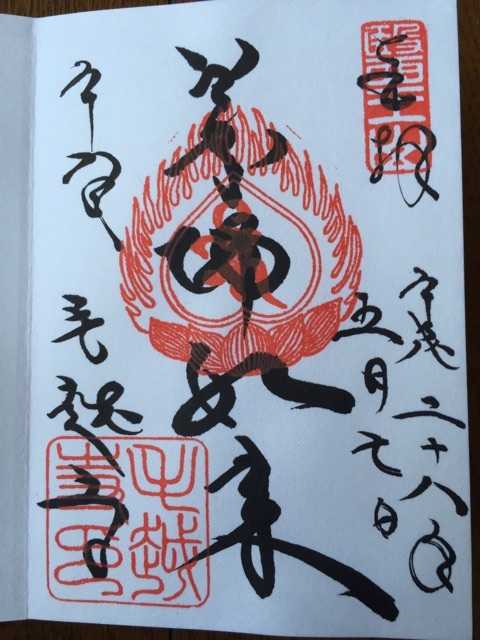 奉拝
醫王山
平成二十八年
五月七日
薬師如来
平泉
毛越寺
毛越
寺印